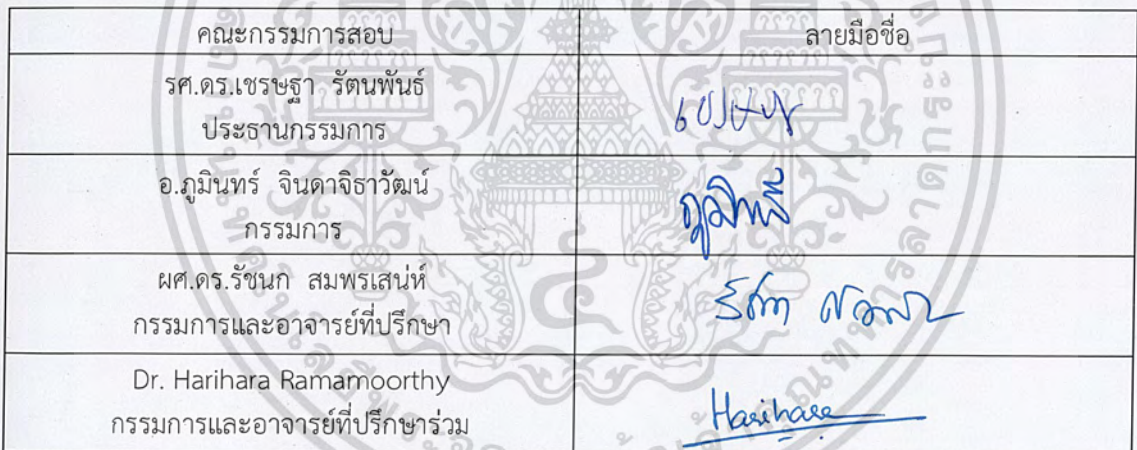 คณะกรรมการสอบ ลายมือชื่อ
รศ.ดร.เชรษฐา รัตนพันธ์
ประธานกรรมการ
อ.ภูมินทร์ จินดาจิธาวัฒน์
กรรมการ
ผศ.ดร.รัชนก สมพรเสน่ห์
กรรมการและอาจารย์ที่ปรึกษา
Dr. Harihara Ramamoorthy
กรรมการและอาจารย์ที่ปรึกษาร่วม
Harihara